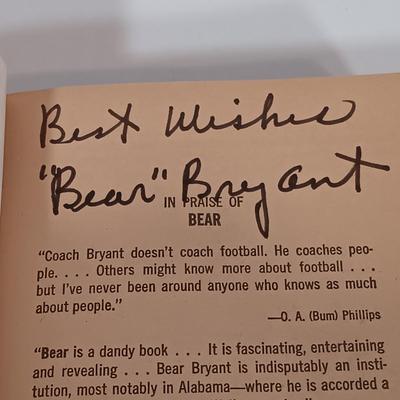 Best Wishes
"Bear" Bryant
IN PRAISE OF
BEAR
"Coach Bryant doesn't coach football. He coaches peo-
ple. . . . Others might know more about football . . .
but I've never been around anyone who knows as much
about people."
—O. A. (Bum) Phillips
"Bear is a dandy book . . . It is fascinating, entertaining
and revealing . . . Bear Bryant is indisputably an insti-
tution, most notably in Alabama—where he is accorded a